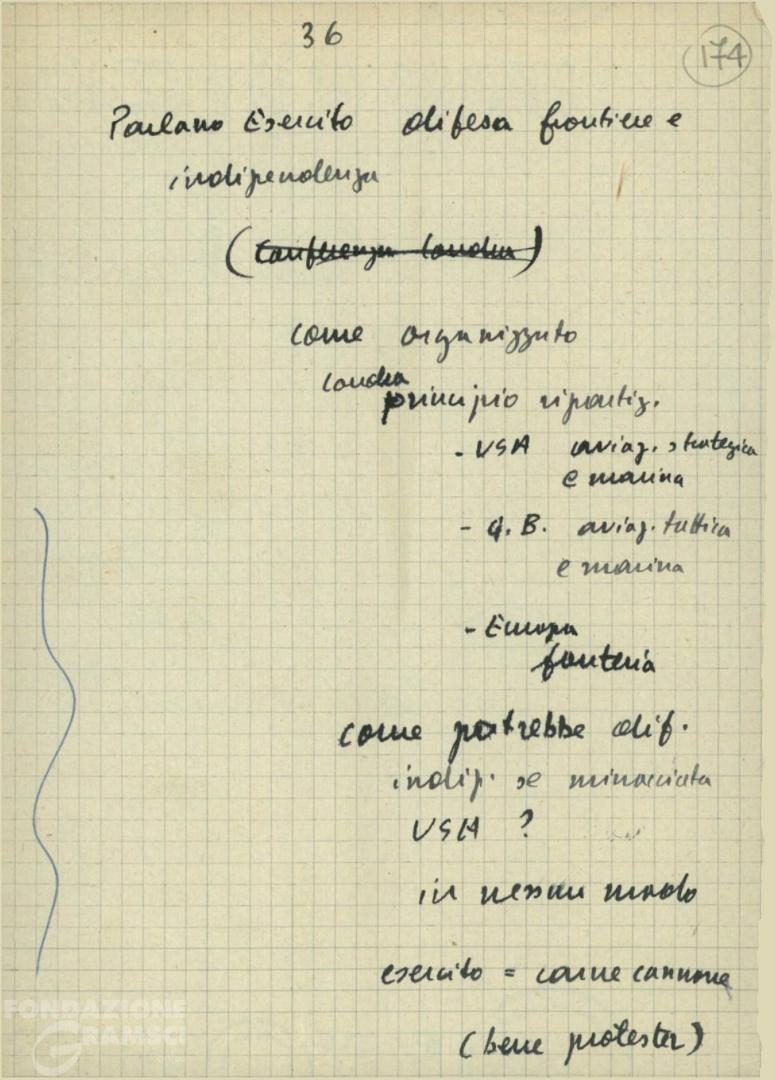 36
174
Parlano Esercito difesa frontiere e
indipendenza
(Conferenza Londra)
come organizzato
Londra
principio ripartiz.
- USA aviaz. strategica
e marina
- G. B. aviaz. tattica
e marina
- Europa
fanteria
come potrebbe dif.
indip. se minacciata
USA ?
in nessun modo
esercito = carne cannone
(bene protesta)
FONDAZIONE
GRAMSCI